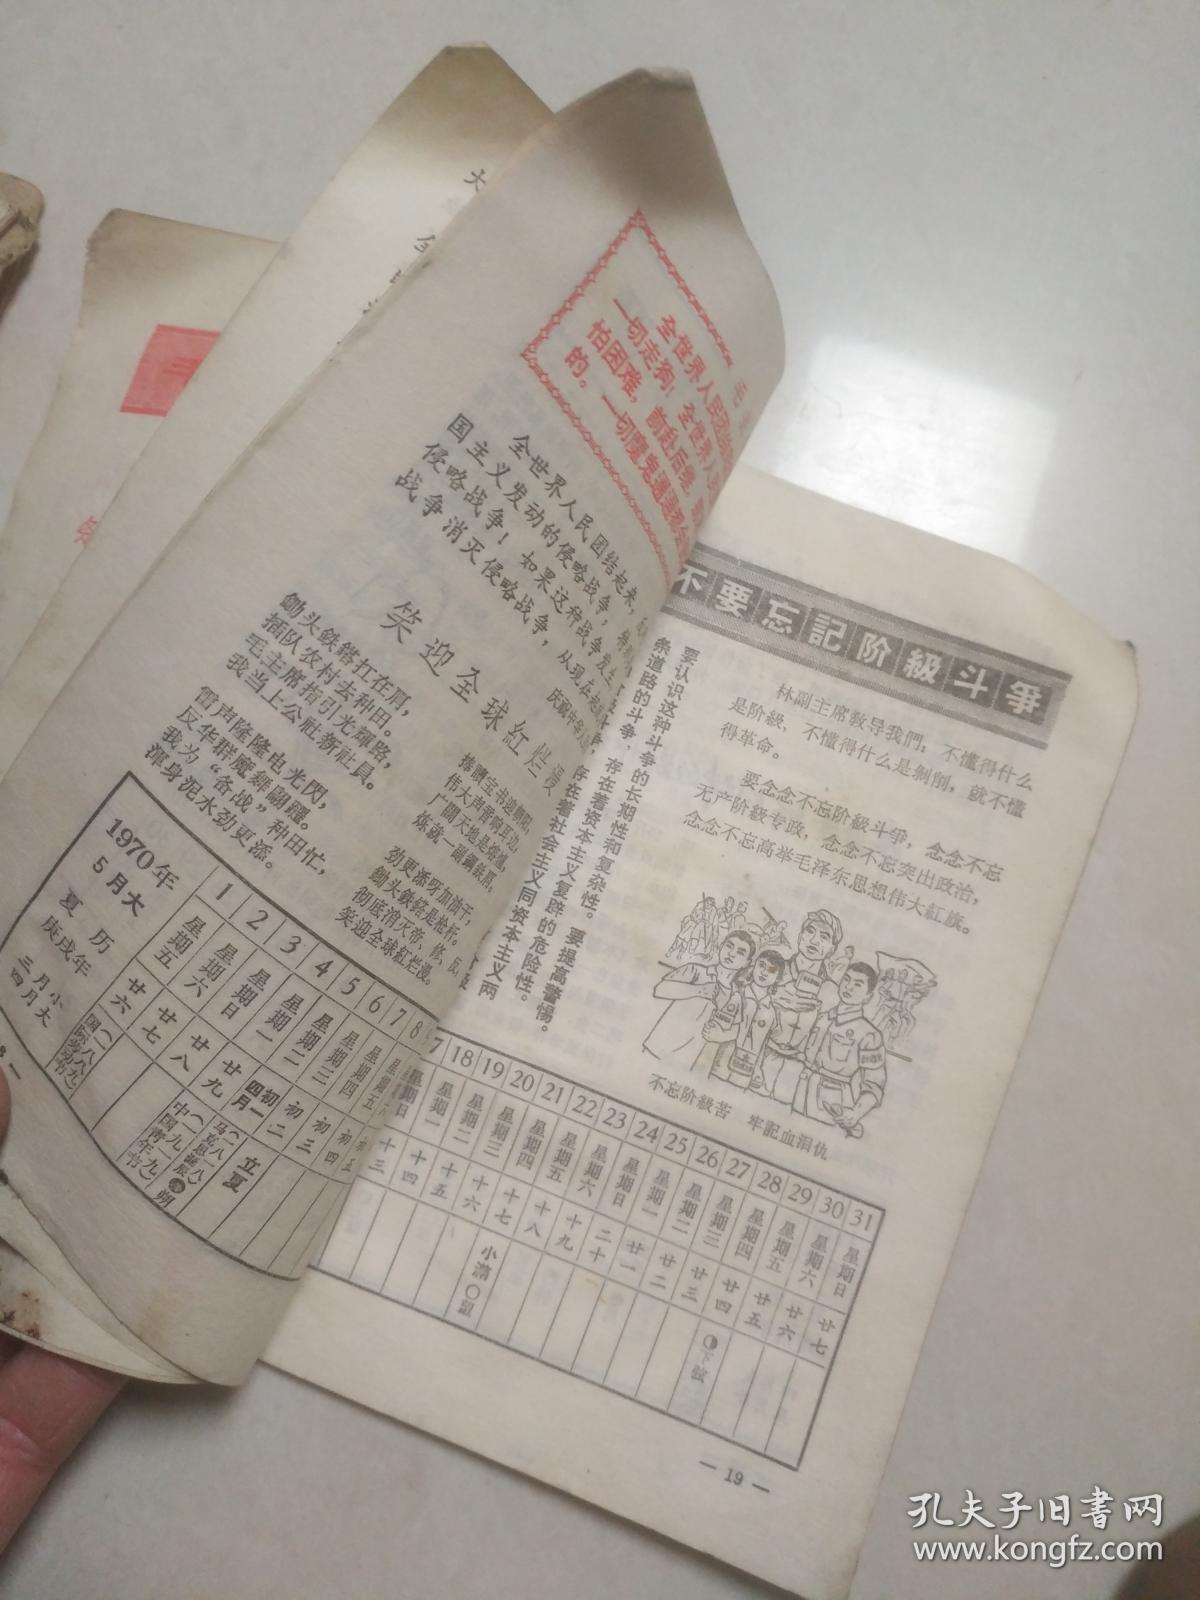 大
全
毛
全世界人民团结
一切走狗！全世界人民
怕困难，前赴后继，
的。一切魔鬼通通都会
全世界人民团结起来，
国主义发动的侵略战争，
侵略战争！如果这种战争发生，
战争消灭侵略战争，从现在起
庆祝中华人
笑迎全球紅烂漫
鋤头鉄鎝扛在肩，
插队农村去种田。
毛主席指引光輝路，
我当上公社新社員。
雷声隆隆电光閃，
反华群魔舞翩躚。
我为“备战”种田忙，
渾身泥水劲更添。
捧讀宝书迎朝阳，
伟大声音响耳边，
广闊天地是熔爐，
炼就一副鋼鉄肩。
劲更添呀加油干，
鋤头鉄鎝是枪杆。
彻底消灭帝、修、反，
笑迎全球紅烂漫。
1970年
5月大
夏历
庚戌年
三月小
四月大
1 2 3 4 5 6 7 8
星期五 星期六 星期日 星期一 星期二 星期三 星期四 星期五
廿六 廿七 廿八 廿九 四月初一 初二 初三 初四
国际劳动节（一八八九）
中国青年节（一九一九）
马克思誕辰（一八一八） 朔
立夏
不要忘記阶級斗爭
林副主席敎导我們：不懂得什么
是阶級，不懂得什么是剝削，就不懂
得革命。
要念念不忘阶級斗爭，念念不忘
无产阶級专政，念念不忘突出政治，
念念不忘高举毛泽东思想伟大紅旗。
存在着社会主义同资本主义两
条道路的斗争，存在着资本主义复辟的危险性。
要认识这种斗争的长期性和复杂性。要提高警惕。
不忘阶級苦 牢記血泪仇
7 18 19 20 21 22 23 24 25 26 27 28 29 30 31
星期日 星期一 星期二 星期三 星期四 星期五 星期六 星期日 星期一 星期二 星期三 星期四 星期五 星期六 星期日
十三 十四 十五 十六 十七 十八 十九 二十 廿一 廿二 廿三 廿四 廿五 廿六 廿七
小滿 ○望
下弦
— 19 —
孔夫子旧书网
www.kongfz.com